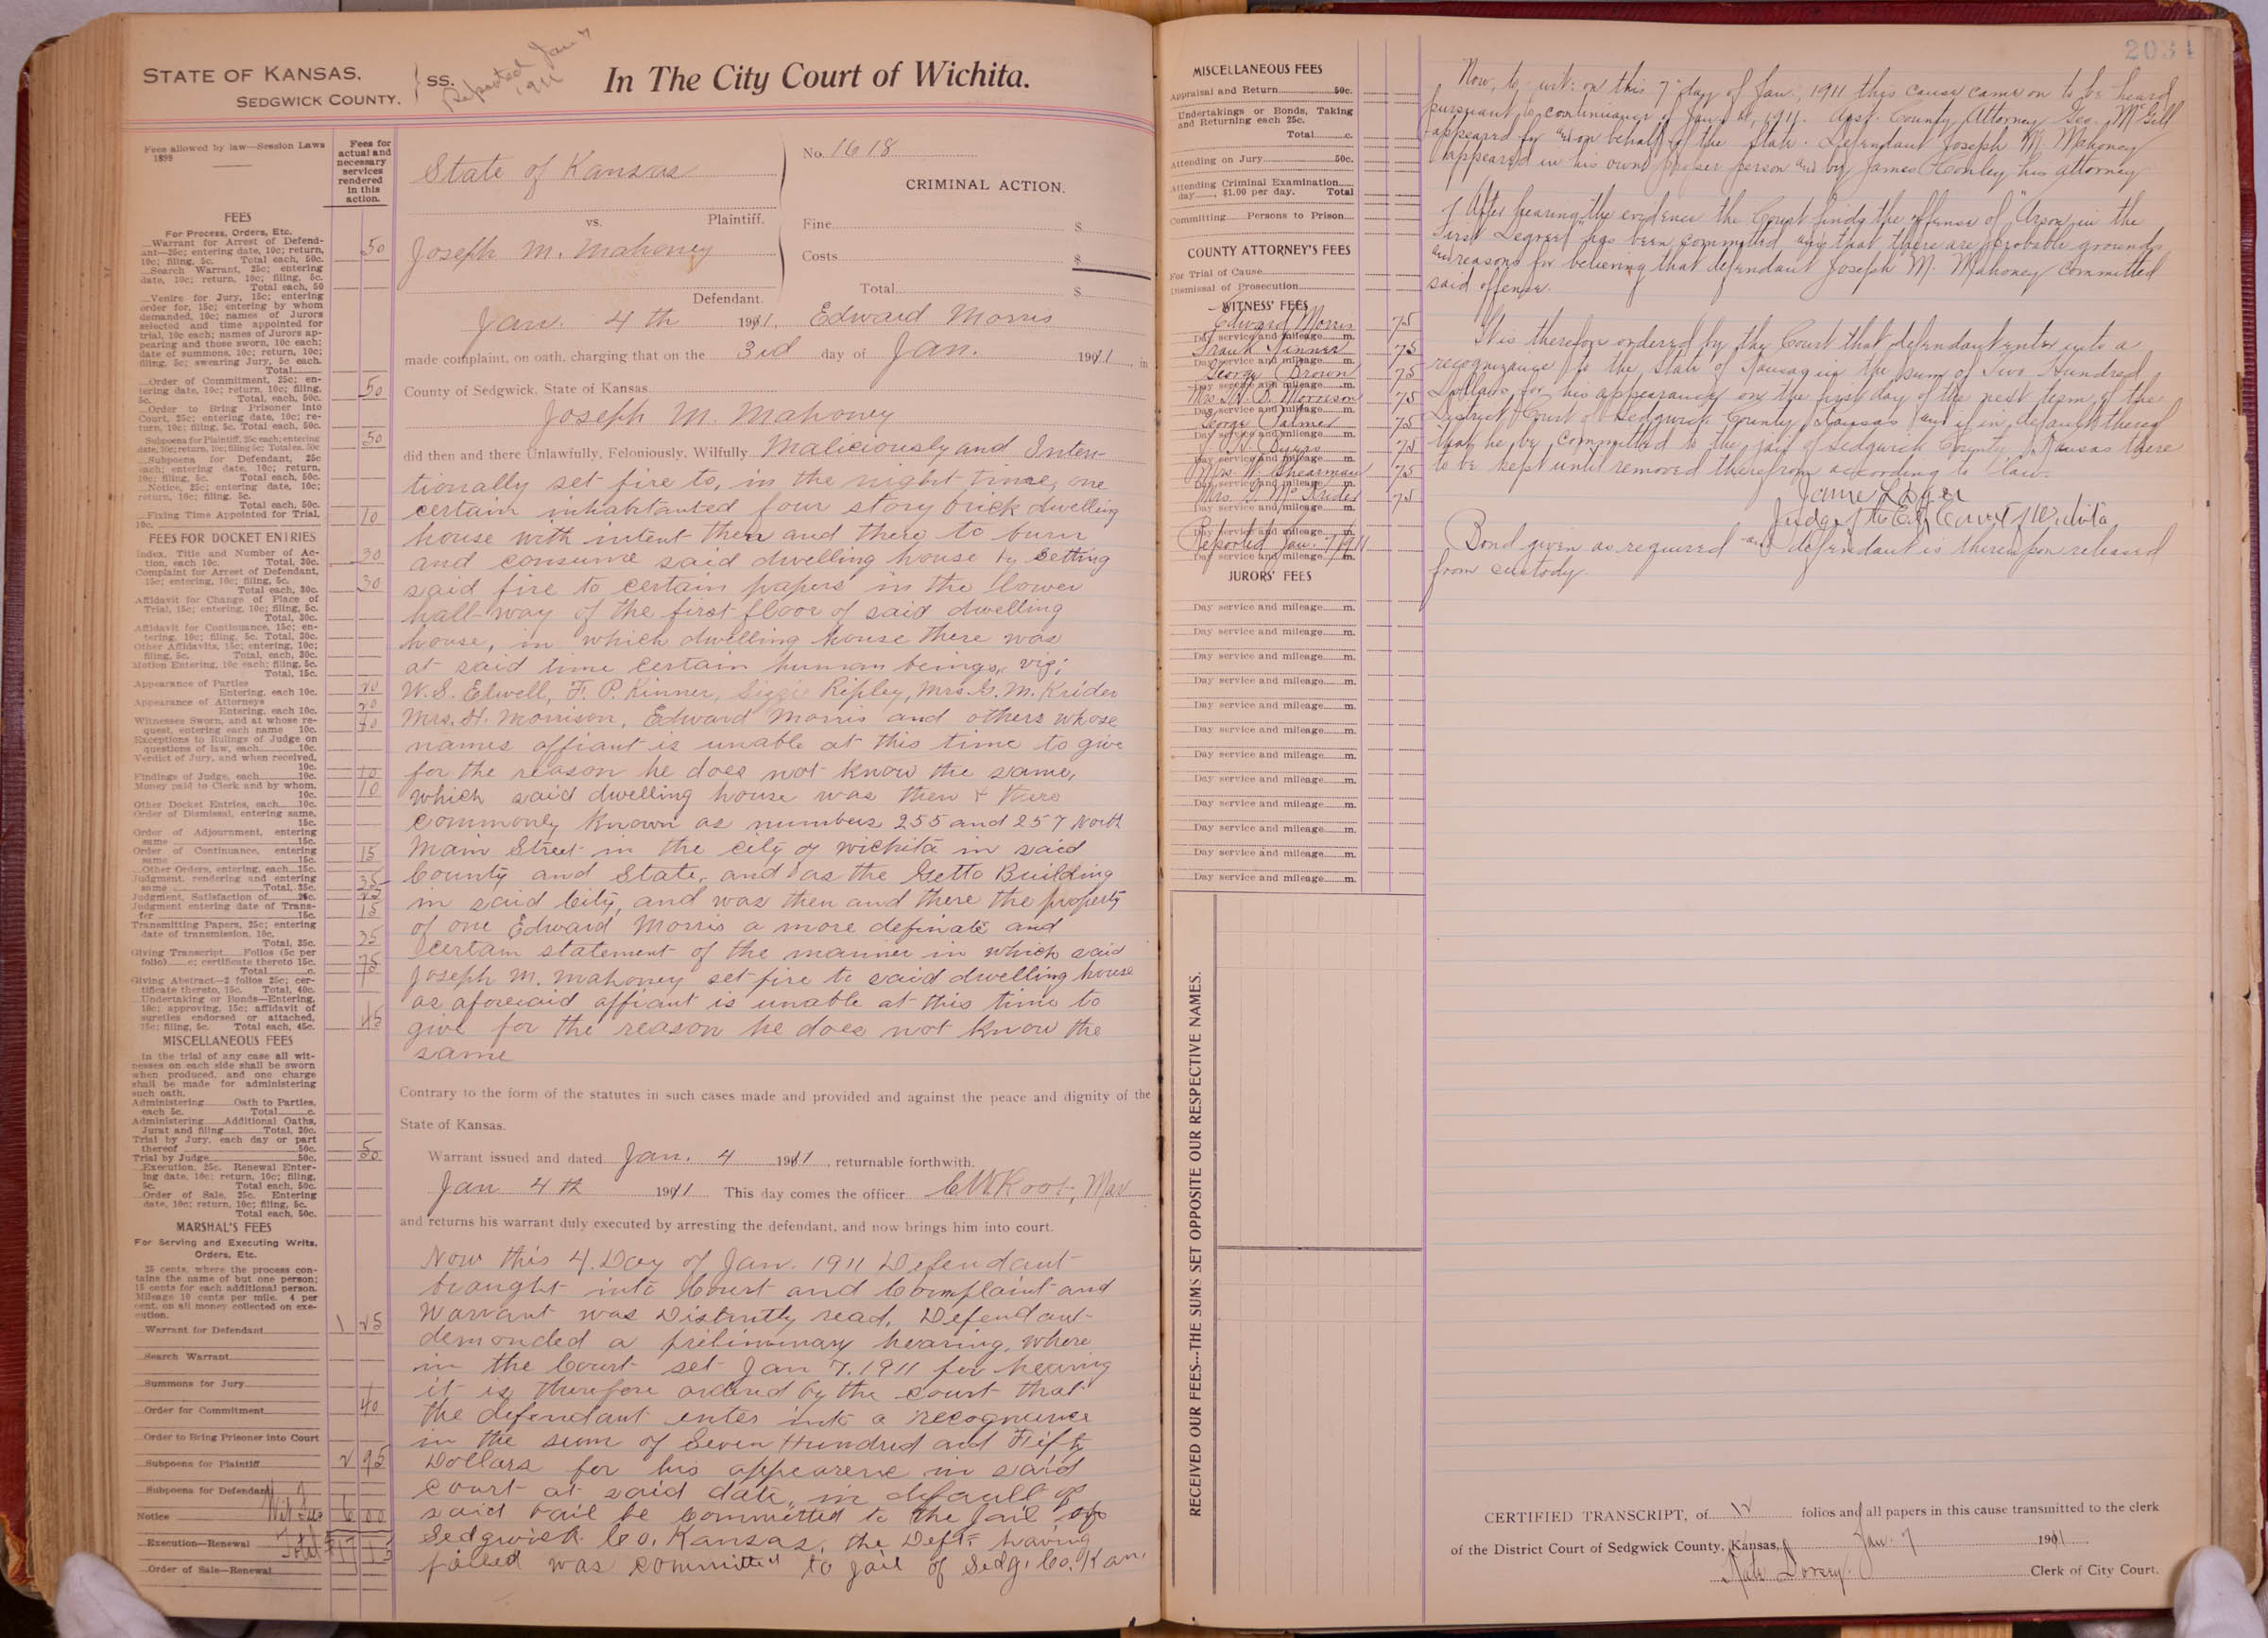 STATE OF KANSAS,
SEDGWICK COUNTY.
SS.
Reported Jan 7
1911
In The City Court of Wichita.
Fees allowed by law—Session Laws
1899
Fees for
actual and
necessary
services
rendered
in this
action.
FEES
For Process, Orders, Etc.
Warrant for Arrest of Defend-
ant—25c; entering date, 10c; return,
10c; filing, 5c. Total each, 50c. 50
Search Warrant, 25c; entering
date, 10c; return, 10c; filing, 5c.
Total each, 50
Venire for Jury, 15c; entering
order for, 15c; entering by whom
demanded, 10c; names of Jurors
selected and time appointed for
trial, 10c each; names of Jurors ap-
pearing and those sworn, 10c each;
date of summons, 10c; return, 10c;
filing, 5c; swearing Jury, 5c each.
Total
Order of Commitment, 25c; en-
tering date, 10c; return, 10c; filing,
5c. Total each, 50c. 50
Order to Bring Prisoner into
Court, 25c; entering date, 10c; re-
turn, 10c; filing, 5c. Total each, 50c.
Subpoena for Plaintiff, 25c each; entering
date, 10c; return, 10c; filing 5c; Total ea. 50c 50
Subpoena for Defendant, 25c
each; entering date, 10c; return,
10c; filing, 5c. Total each, 50c.
Notice, 25c; entering date, 10c;
return, 10c; filing, 5c.
Total each, 50c.
Fixing Time Appointed for Trial,
10c. 10
FEES FOR DOCKET ENTRIES
Index, Title and Number of Ac-
tion, each 10c. Total, 30c. 30
Complaint for Arrest of Defendant,
15c; entering, 10c; filing, 5c.
Total each, 30c. 30
Affidavit for Change of Place of
Trial, 15c; entering, 10c; filing, 5c.
Total, 30c.
Affidavit for Continuance, 15c; en-
tering, 10c; filing, 5c. Total, 30c.
Other Affidavits, 15c; entering, 10c;
filing, 5c. Total, each, 30c.
Motion Entering, 10c each; filing, 5c.
Total, 15c.
Appearance of Parties
Entering, each 10c. 20
Appearance of Attorneys
Entering, each 10c. 20
Witnesses Sworn, and at whose re-
quest, entering each name 10c.
Exceptions to Rulings of Judge on
questions of law, each 10c.
Verdict of Jury, and when received,
10c.
Findings of Judge, each 10c. 10
Money paid to Clerk and by whom,
10c. 10
Other Docket Entries, each 10c.
Order of Dismissal, entering same,
15c.
Order of Adjournment, entering
same 15c.
Order of Continuance, entering
same 15c. 15
Other Orders, entering, each 15c.
Judgment, rendering and entering
same Total, 35c. 35
Judgment, Satisfaction of 25c.
Judgment entering date of Trans-
fer 15c. 15
Transmitting Papers, 25c; entering
date of transmission, 10c.
Total, 35c. 35
Giving Transcript Folios (5c per
folio) c; certificate thereto 15c.
Total c. 75
Giving Abstract—2 folios 25c; cer-
tificate thereto, 15c. Total, 40c.
Undertaking or Bonds—Entering,
10c; approving, 15c; affidavit of
sureties endorsed or attached,
15c; filing, 5c. Total each, 45c. 45
MISCELLANEOUS FEES
In the trial of any case all wit-
nesses on each side shall be sworn
when produced, and one charge
shall be made for administering
such oath.
Administering Oath to Parties,
each 5c. Total c.
Administering Additional Oaths,
Jurat and filing Total, 20c.
Trial by Jury, each day or part
thereof 50c.
Trial by Judge 50c. 50
Execution, 25c. Renewal Enter-
ing date, 10c; return, 10c; filing,
5c. Total each, 50c.
Order of Sale, 25c. Entering
date, 10c; return, 10c; filing, 5c.
Total each, 50c.
MARSHAL'S FEES
For Serving and Executing Writs,
Orders, Etc.
25 cents, where the process con-
tains the name of but one person;
15 cents for each additional person.
Mileage 10 cents per mile. 4 per
cent. on all money collected on exe-
cution.
Warrant for Defendant 1 25
Search Warrant
Summons for Jury
Order for Commitment 40
Order to Bring Prisoner into Court
Subpoena for Plaintiff 2 95
Subpoena for Defendant
Notice Wit Fees 6 00
Execution—Renewal Total
Order of Sale—Renewal
State of Kansas
Plaintiff.
vs.
Joseph M. Mahoney
Defendant.
No. 1618
CRIMINAL ACTION.
Fine $
Costs $
Total $
Jan. 4th 1911, Edward Morris
made complaint, on oath, charging that on the 3rd day of Jan. 1911, in
County of Sedgwick, State of Kansas
Joseph M. Mahoney
did then and there Unlawfully, Feloniously, Wilfully Maliciously and Inten-
tionally set fire to, in the night time, one
certain inhabitanted four story brick dwelling
house with intent then and there to burn
and consume said dwelling house by setting
said fire to certain papers in the lower
hall-way of the first floor of said dwelling
house, in which dwelling house there was
at said time certain human beings, viz;
W. S. Elwell, F. P. Kinner, Lizzie Ripley, Mrs. G. M. Krider
Mrs. H. Morrison, Edward Morris and others whose
names affiant is unable at this time to give
for the reason he does not know the same,
which said dwelling house was then & there
commonly known as numbers 255 and 257 North
Main Street in the city of Wichita in said
County and State, and as the Getto Building
in said City, and was then and there the property
of one Edward Morris a more definate and
certain statement of the manner in which said
Joseph M. Mahoney set fire to said dwelling house
as aforesaid affiant is unable at this time to
give for the reason he does not know the
same
Contrary to the form of the statutes in such cases made and provided and against the peace and dignity of the
State of Kansas.
Warrant issued and dated Jan. 4 1911, returnable forthwith.
Jan 4th 1911 This day comes the officer C W Root, Mar
and returns his warrant duly executed by arresting the defendant, and now brings him into court.
Now this 4. Day of Jan. 1911 Defendant
braught into Court and Complaint and
Warrant was Distinctly read, Defendant
demonded a preliminary hearing, where
in the Court set Jan 7. 1911 for hearing
it is therefore ordered by the court that
the defendant enter into a recognunce
in the sum of Seven Hundred and Fifty
Dollars for his appearene in said
court at said date, in default of
said bail be Committed to the Jail of
Sedgwick Co. Kansas, the Deft= having
failed was committed to jail of Sedg. Co. Kan.
MISCELLANEOUS FEES
Appraisal and Return 50c.
Undertakings or Bonds, Taking
and Returning each 25c.
Total c.
Attending on Jury 50c.
Attending Criminal Examination
day , $1.00 per day. Total
Committing Persons to Prison
COUNTY ATTORNEY'S FEES
For Trial of Cause
Dismissal of Prosecution
WITNESS' FEES
Edward Morris 75
Day service and mileage m.
Frank Kinner 75
Day service and mileage m.
George Brown 75
Day service and mileage m.
Mrs. H. B. Morrison 75
Day service and mileage m.
George Palmer 75
Day service and mileage m.
Byers 75
Day service and mileage m.
Mrs. W. Shearman 75
Day service and mileage m.
Mrs. G. M. Krider 75
Day service and mileage m.
Day service and mileage m.
Reported Jan. 7/1911
Day service and mileage m.
JURORS' FEES
Day service and mileage m.
Day service and mileage m.
Day service and mileage m.
Day service and mileage m.
Day service and mileage m.
Day service and mileage m.
Day service and mileage m.
Day service and mileage m.
Day service and mileage m.
Day service and mileage m.
Day service and mileage m.
Day service and mileage m.
RECEIVED OUR FEES---THE SUMS SET OPPOSITE OUR RESPECTIVE NAMES.
Now, to-wit: on this 7" day of Jan., 1911 this cause came on to be heard
pursuant to continuance of Jan. 4, 1911. Asst. County Attorney Geo. McGill
appeared for and on behalf of the State. Defendant Joseph M. Mahoney
appeared in his own proper person and by James Conley his attorney
After hearing the evidence the Court finds the offense of "Arson in the
First Degree" has been committed and that there are probable grounds
and reasons for believing that defendant Joseph M. Mahoney committed
said offense.
It is therefore ordered by the Court that defendant enter into a
recognizance to the State of Kansas in the sum of Two Hundred
Dollars for his appearance on the first day of the next term of the
District Court of Sedgwick County Kansas and if in default thereof
that he be committed to the jail of Sedgwick County Kansas there
to be kept until removed therefrom according to law.
Judge of the City Court of Wichita
Bond given as required and defendant is thereupon released
from custody.
CERTIFIED TRANSCRIPT, of 12 folios and all papers in this cause transmitted to the clerk
of the District Court of Sedgwick County, Kansas, Jan. 7 1911
Kate Dorsey. Clerk of City Court.